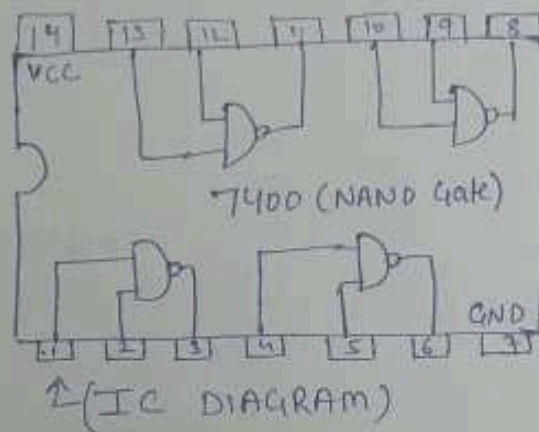 14 13 12 11 10 9 8
VCC
7400 (NAND Gate)
GND
1 2 3 4 5 6 7
(IC DIAGRAM)